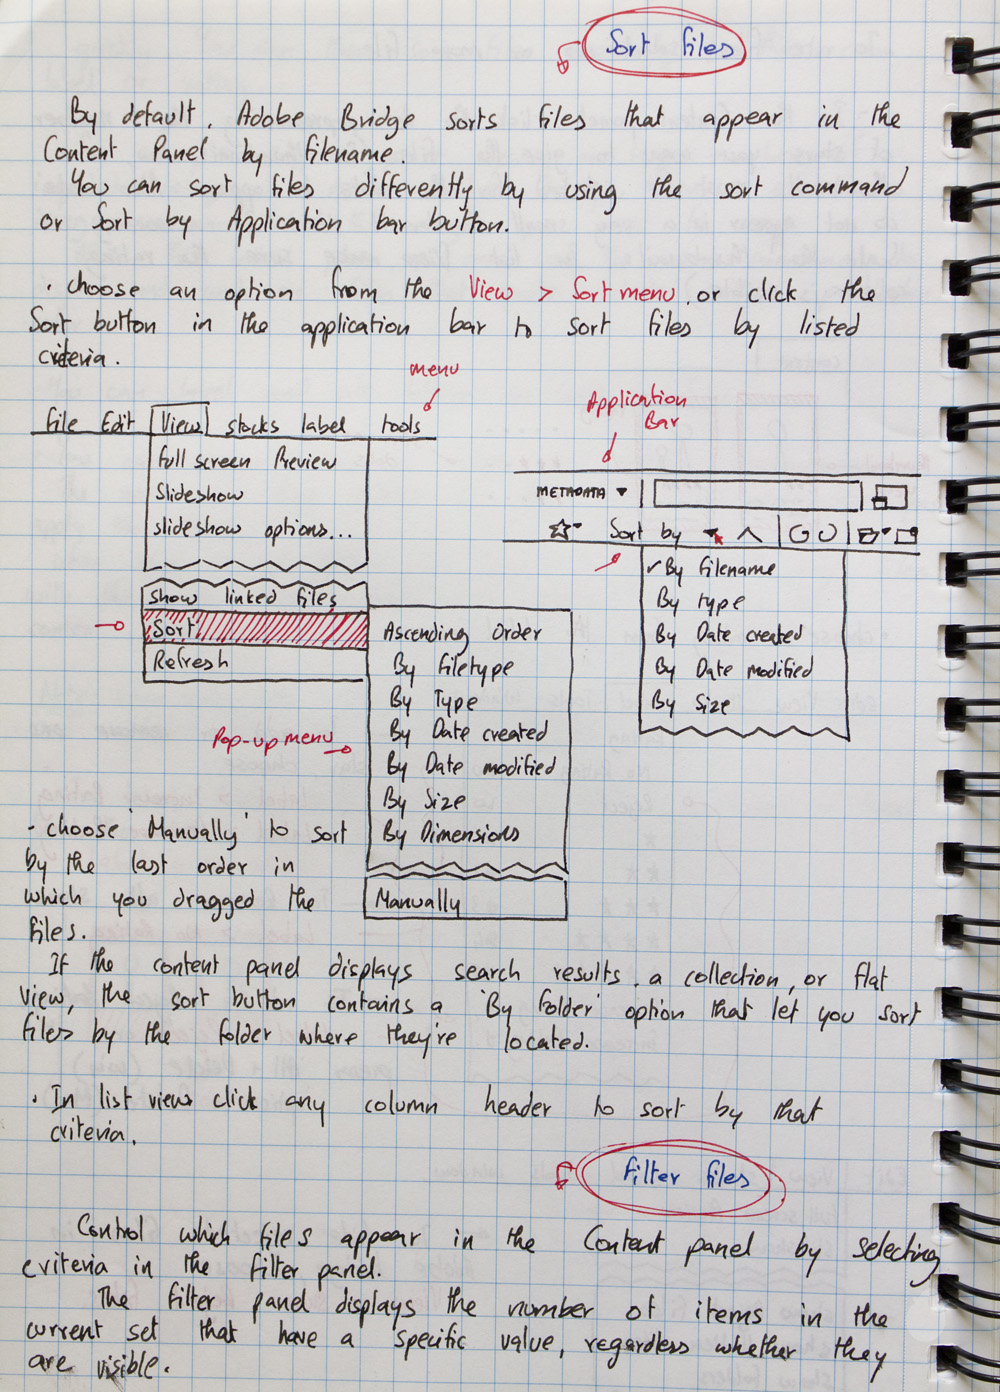 Sort files
By default, Adobe Bridge sorts files that appear in the
Content Panel by filename.
You can sort files differently by using the sort command
or Sort by Application bar button.
. choose an option from the View > Sort menu, or click the
Sort button in the application bar to sort files by listed
criteria.
menu
Application
Bar
File Edit View stacks label tools
Full screen Preview
Slideshow
slideshow options...
show linked files
Sort
Refresh
METADATA
Sort by
✓ By filename
By type
By Date created
By Date modified
By Size
Ascending Order
By Filetype
By Type
By Date created
By Date modified
By Size
By Dimensions
Manually
Pop-up menu
. choose 'Manually' to sort
by the last order in
which you dragged the
files.
If the content panel displays search results, a collection, or flat
view, the sort button contains a 'By Folder' option that let you sort
files by the folder where they're located.
. In list view click any column header to sort by that
criteria.
Filter files
Control which files appear in the Content panel by selecting
criteria in the filter panel.
The filter panel displays the number of items in the
current set that have a specific value, regardless whether they
are visible.